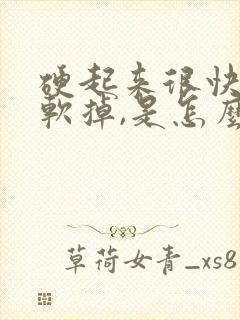 硬起来很快
軟掉,是怎麼
草荷女青_xs8